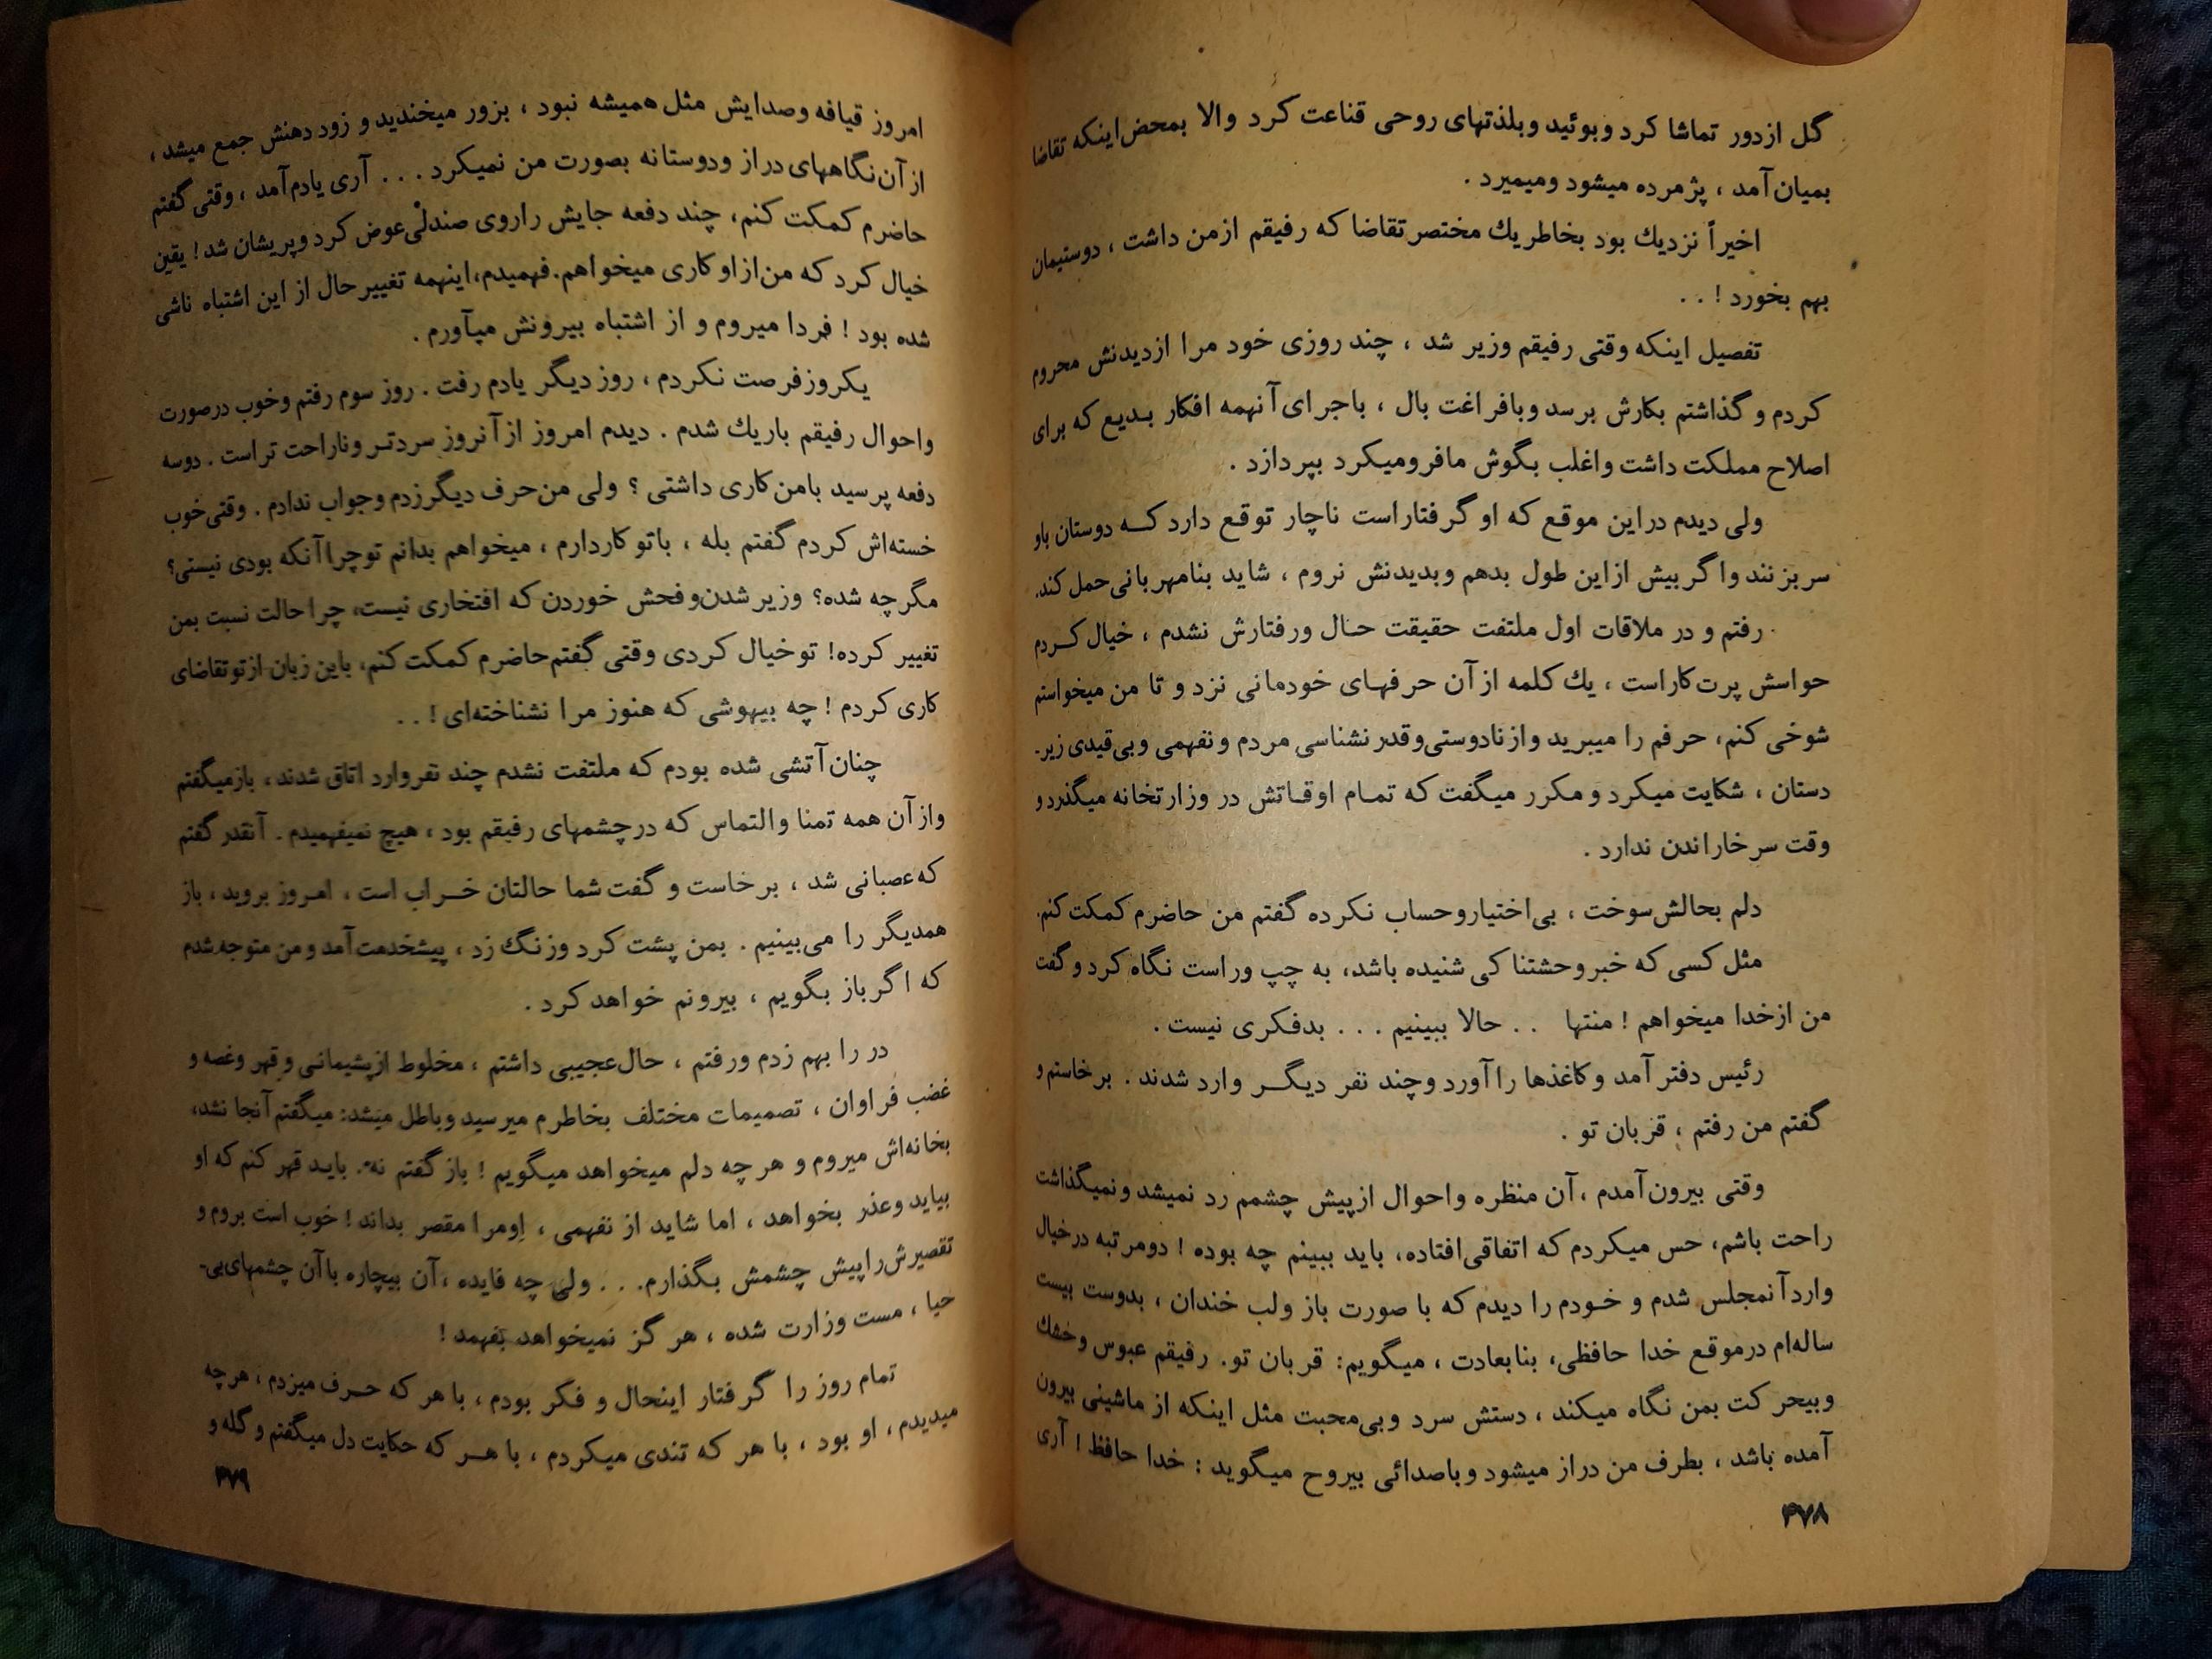 گل ازدور تماشا کرد وبوئید وبلذتهای روحی قناعت کرد والا بمحض اینکه تقاضا
بمیان آمد ، پژمرده میشود ومیمیرد .
اخیراً نزدیك بود بخاطر یك مختصر تقاضا که رفیقم ازمن داشت ، دوستیمان
بهم بخورد ! . .
تفصیل اینکه وقتی رفیقم وزیر شد ، چند روزی خود مرا ازدیدنش محروم
کردم و گذاشتم بکارش برسد وبافراغت بال ، باجرای آنهمه افکار بدیع که برای
اصلاح مملکت داشت واغلب بگوش مافرومیکرد بپردازد .
ولی دیدم دراین موقع که او گرفتاراست ناچار توقع دارد که دوستان باو
سربزنند واگر بیش ازاین طول بدهم وبدیدنش نروم ، شاید بنامهربانی حمل کند.
رفتم و در ملاقات اول ملتفت حقیقت حال ورفتارش نشدم ، خیال کردم
حواسش پرت کاراست ، یك کلمه ازآن حرفهای خودمانی نزد و تا من میخواستم
شوخی کنم، حرفم را میبرید وازنادوستی وقدرنشناسی مردم ونفهمی وبی‌قیدی زیر-
دستان ، شکایت میکرد و مکرر میگفت که تمام اوقاتش در وزارتخانه میگذرد و
وقت سرخاراندن ندارد .
دلم بحالش سوخت ، بی‌اختیار وحساب نکرده گفتم من حاضرم کمکت کنم.
مثل کسی که خبر وحشتناکی شنیده باشد، به چپ وراست نگاه کرد و گفت
من ازخدا میخواهم ! منتها . . حالا ببینیم . . . بدفکری نیست .
رئیس دفتر آمد و کاغذها را آورد وچند نفر دیگر وارد شدند . برخاستم و
گفتم من رفتم ، قربان تو .
وقتی بیرون آمدم ، آن منظره واحوال ازپیش چشمم رد نمیشد ونمیگذاشت
راحت باشم، حس میکردم که اتفاقی افتاده، باید ببینم چه بوده ! دومرتبه درخیال
وارد آنمجلس شدم و خودم را دیدم که با صورت باز ولب خندان ، بدوست بیست
ساله‌ام درموقع خدا حافظی، بنابعادت ، میگویم: قربان تو. رفیقم عبوس وخشك
وبیحرکت بمن نگاه میکند ، دستش سرد وبی‌محبت مثل اینکه از ماشینی بیرون
آمده باشد ، بطرف من دراز میشود وباصدائی بیروح میگوید : خدا حافظ ! آری
۴۷۸
امروز قیافه وصدایش مثل همیشه نبود ، بزور میخندید و زود دهنش جمع میشد ،
از آن نگاههای دراز ودوستانه بصورت من نمیکرد . . . آری یادم آمد ، وقتی گفتم
حاضرم کمکت کنم، چند دفعه جایش را روی صندلی عوض کرد وپریشان شد ! یقین
خیال کرد که من ازاو کاری میخواهم. فهمیدم، اینهمه تغییر حال از این اشتباه ناشی
شده بود ! فردا میروم و از اشتباه بیرونش میآورم .
یکروز فرصت نکردم ، روز دیگر یادم رفت . روز سوم رفتم وخوب درصورت
واحوال رفیقم باریك شدم . دیدم امروز ازآنروز سردتر وناراحت تراست . دوسه
دفعه پرسید بامن کاری داشتی ؟ ولی من حرف دیگرزدم وجواب ندادم . وقتی خوب
خسته‌اش کردم گفتم بله ، باتو کاردارم ، میخواهم بدانم تو چرا آنکه بودی نیستی؟
مگر چه شده؟ وزیر شدن وفحش خوردن که افتخاری نیست، چرا حالت نسبت بمن
تغییر کرده! تو خیال کردی وقتی گفتم حاضرم کمکت کنم، باین زبان از تو تقاضای
کاری کردم ! چه بیهوشی که هنوز مرا نشناخته‌ای ! . .
چنان آتشی شده بودم که ملتفت نشدم چند نفر وارد اتاق شدند ، بازمیگفتم
وازآن همه تمنا والتماس که درچشمهای رفیقم بود ، هیچ نمیفهمیدم . آنقدر گفتم
که عصبانی شد ، برخاست و گفت شما حالتان خراب است ، امروز بروید ، باز
همدیگر را می‌بینیم . بمن پشت کرد وزنگ زد ، پیشخدمت آمد و من متوجه شدم
که اگر باز بگویم ، بیرونم خواهد کرد .
در را بهم زدم ورفتم ، حال عجیبی داشتم ، مخلوط ازپشیمانی و قهر وغصه و
غضب فراوان ، تصمیمات مختلف بخاطرم میرسید وباطل میشد: میگفتم آنجا نشد،
بخانه‌اش میروم و هر چه دلم میخواهد میگویم ! باز گفتم نه. باید قهر کنم که او
بیاید وعذر بخواهد ، اما شاید از نفهمی ، اومرا مقصر بداند ! خوب است بروم و
تقصیرش را پیش چشمش بگذارم. . . ولی چه فایده ، آن بیچاره با آن چشمهای بی-
حیا ، مست وزارت شده ، هرگز نمیخواهد بفهمد !
تمام روز را گرفتار اینحال و فکر بودم ، با هر که حرف میزدم ، هرچه
میدیدم ، او بود ، با هر که تندی میکردم ، با هر که حکایت دل میگفتم و گله و
۴۷۹